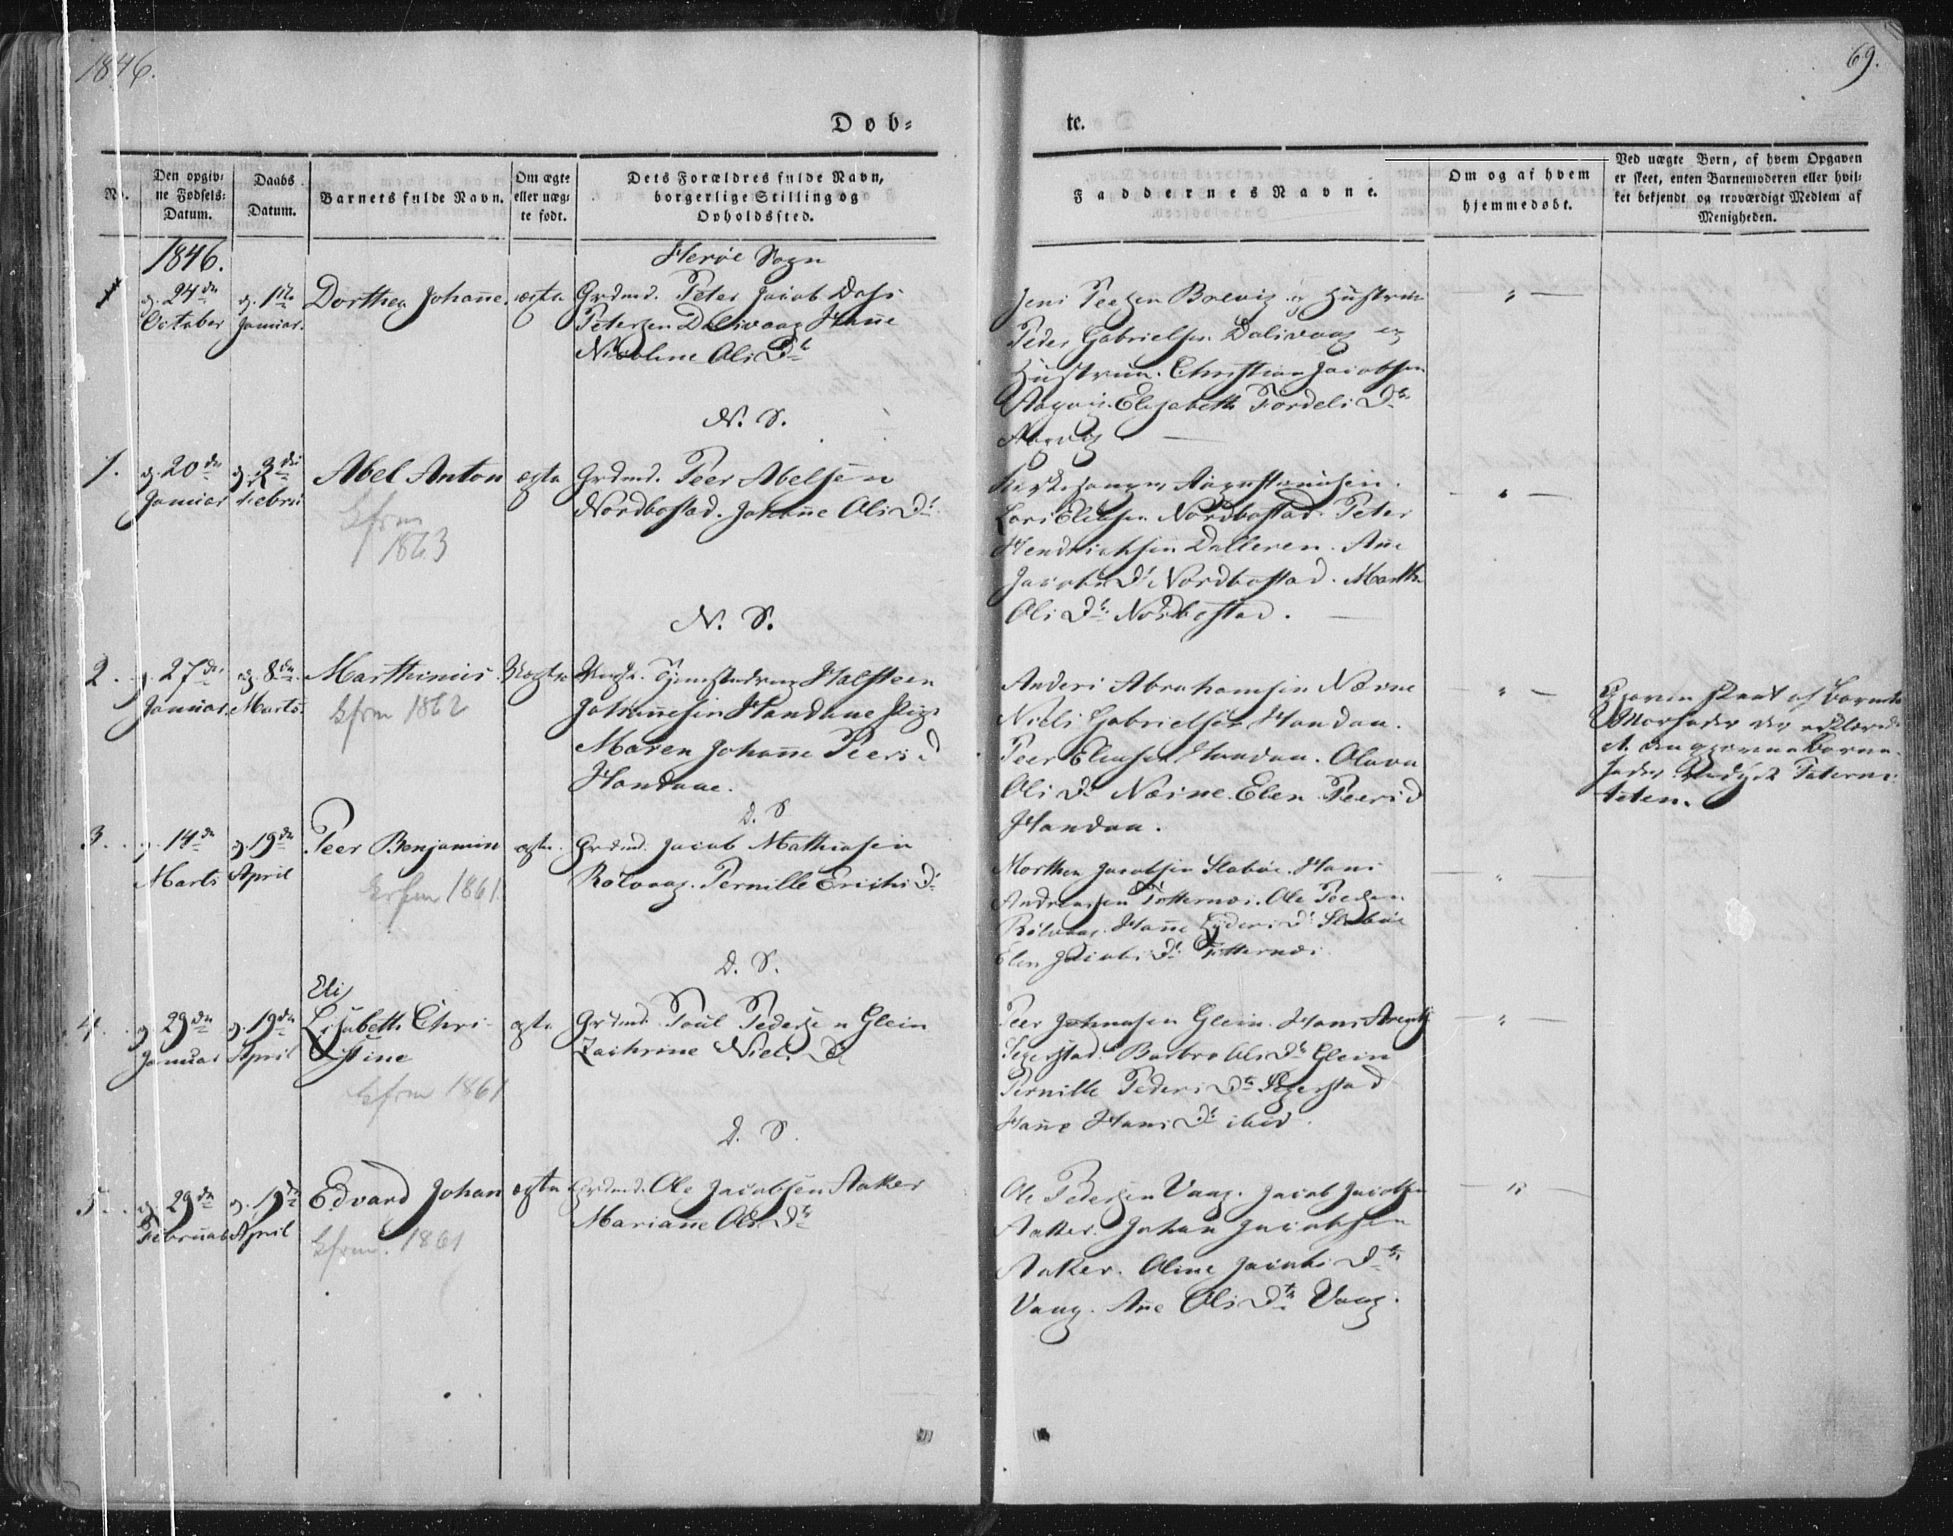 1846.
69.
Døb-
te.
No.
Den opgiv-
ne Fødsels-
Datum.
Daabs
Datum.
Barnets fulde Navn.
Om ægte
eller uæg-
te født.
Dets Forældres fulde Navn,
borgerlige Stilling og
Opholdssted.
Faddernes Navne.
Om og af hvem
hjemmedøbt.
Ved uægte Børn, af hvem Opgaven
er skeet, enten Barnemoderen eller hvil-
ket bekjendt og troværdigt Medlem af
Menigheden.
1846.
Herøe Sogn
d. 24de
October
d. 1te
Januar
Dorthea Johanne
ægte
Grdmd. Peter Jacob Dass
Petersen Dalsvaag Hanne
Nicoline Ols Dt
Jens Peersen Brevig og Hustrue
Peder Gabrielsen Dalsvaag og
Hustrue. Christian Jacobsen
Elisabeth Tordels Dt
N. S.
1.
d. 20de
Januar
d. 2den
Februar
Abel Anton
Kfrm
1863
ægte
Grdmd. Peer Abelsen
Nordbostad. Johanne Ols Dt
Kirkesanger Augustinusen.
Lars Eliasen Nordbostad. Peter
Hendrichsen Dalleren. Ane
Jacobs Dt Nordbostad. Marth
Ols Dt Nordbostad.
N. S.
2.
d. 27de
Januar
d. 8de
Marts
Marthinus
Kfrm 1862
Uægte
Ungk. Tjenestedreng Halsteen
Johannesen Handaae Pige
Maren Johanne Peers d
Handaae.
Anders Abrahamsen Næsne
Niels Gabrielsen Handaa.
Peer Eliasen Handaa. Olava
Ols Dt Næsne. Elen Peers d
Handaa.
af Barnets
Morfader der erklærede
at angivne Barne-
fader Paterni-
teten.
D. S
3.
d. 14de
Marts
d. 19de
April
Peer Benjamin
Kfrm 1861
ægte.
Grdmd. Jacob Mathiasen
Rølvaag. Pernille Erichs Dt
Morthen Jacobsen Stabøe. Hans
Andreasen Tøtternæs. Ole Peersen
Rølvaag. Hanne Lyders Dt Stabøe
Elen Jacobs Dt Tøtternæs
D. S.
4.
d. 29de
Januar
d. 19de
April
Elis
Lisabeth Chri-
stine
Kfrm 1861
ægte
Grdmd. Poul Pedersen Glein
Zachrine Niels Dt
Peer Johnasen Glein. Hans Arentz
Segerstad. Barbro Ols Dt Glein
Pernille Peders Dt Segerstad
Hanne Hans Dt ibid.
D. S.
5.
d. 29de
Februar
d. 19de
April
Edvard Johan
Kfrm. 1861
ægte
Grdmd. Ole Jacobsen Aaker
Mariane Ols Dt
Ole Pedersen Vaag. Jacob Jacobsen
Aaker. Johan Jacobsen
Aaker. Oline Jacobs Dt
Vaag. Ane Ols Dt Vaag.